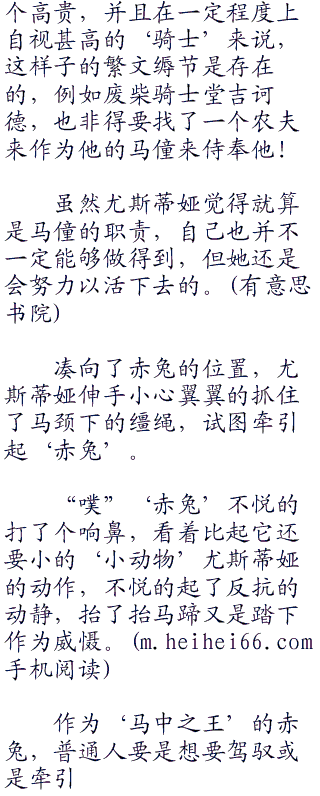 个高贵，并且在一定程度上
自视甚高的‘骑士’来说，
这样子的繁文缛节是存在
的，例如废柴骑士堂吉诃
德，也非得要找了一个农夫
来作为他的马僮来侍奉他！
虽然尤斯蒂娅觉得就算
是马僮的职责，自己也并不
一定能够做得到，但她还是
会努力以活下去的。(有意思
书院)
凑向了赤兔的位置，尤
斯蒂娅伸手小心翼翼的抓住
了马颈下的缰绳，试图牵引
起‘赤兔’。
“噗”‘赤兔’不悦的
打了个响鼻，看着比起它还
要小的‘小动物’尤斯蒂娅
的动作，不悦的起了反抗的
动静，抬了抬马蹄又是踏下
作为威慑。(m.heihei66.com
手机阅读)
作为‘马中之王’的赤
兔，普通人要是想要驾驭或
是牵引